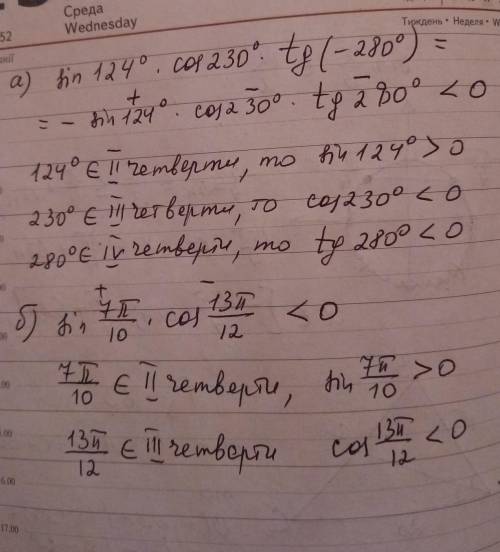 Среда
Wednesday
52
Тиждень • Неделя • W
а) sin 124° · cos 230° · tg (−280°) =
+ − −
= − sin 124° · cos 230° · tg 280° < 0
124° ∈ II четверти, то sin 124° > 0
230° ∈ III четверти, то cos 230° < 0
280° ∈ IV четверти, то tg 280° < 0
+ −
б) sin 7π/10 · cos 13π/12 < 0
7π/10 ∈ II четверти, sin 7π/10 > 0
13π/12 ∈ III четверти cos 13π/12 < 0
16.00
17.00